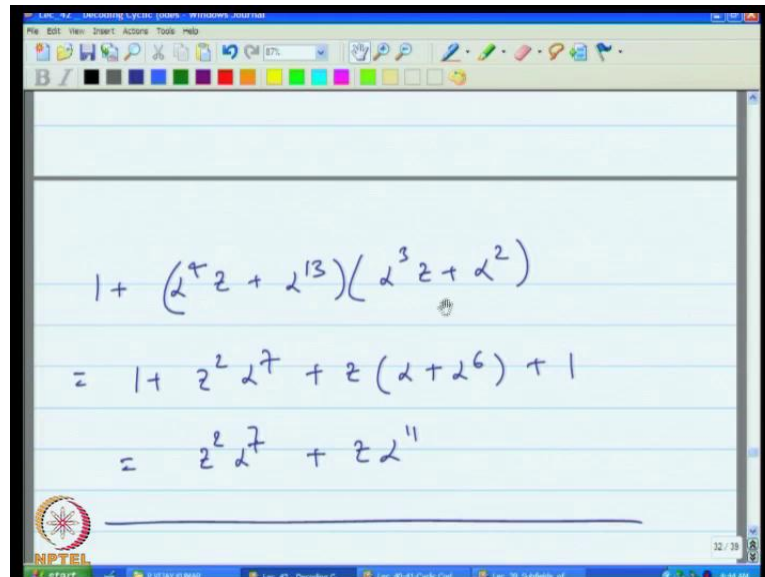 Lec_42 _ Decoding Cyclic Codes - Windows Journal
File Edit View Insert Actions Tools Help
87%
B I
1 + (α⁴z + α¹³)(α³z + α²)
= 1 + z²α⁷ + z(α + α⁶) + 1
= z²α⁷ + zα¹¹
NPTEL
32 / 39
start